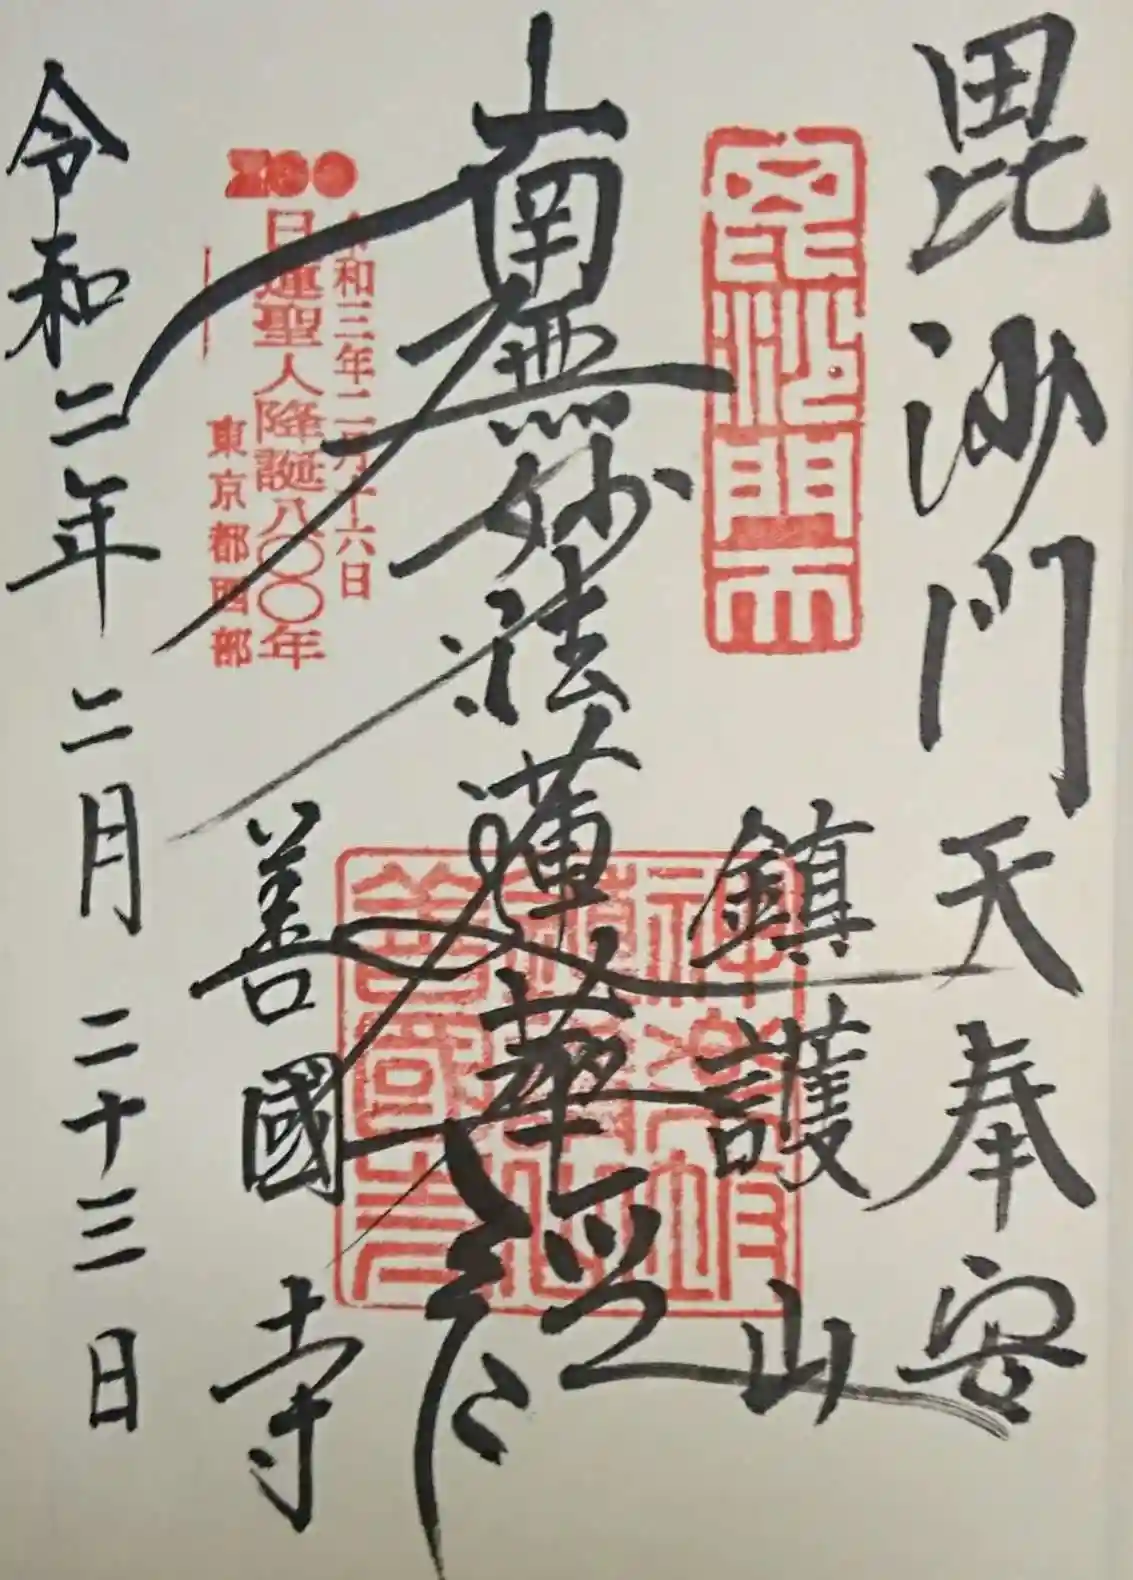 毘沙門天奉安
毘沙門天
鎮護山
南無妙法蓮華経
令和三年二月十六日
800
日蓮聖人降誕八〇〇年
東京都西部
善國寺
令和二年 二月 二十三日